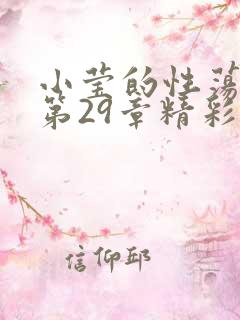 小莹的性荡
第29章精彩
信仰邱